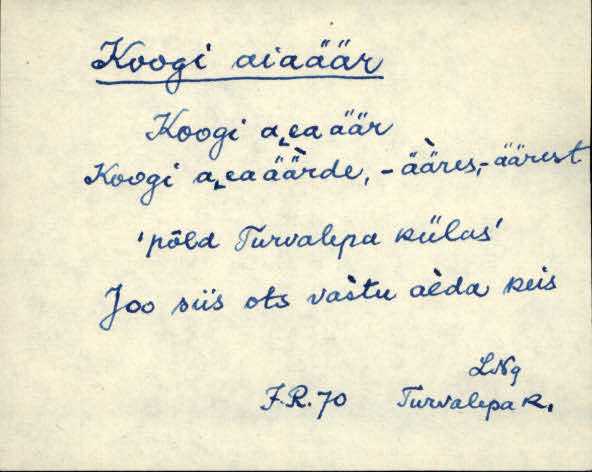 Koogi aiaäär
Koogi a˛eaäär
Koogi a˛eaäärde, -ääres, -äärest
'põld Turvalepa külas'
Joo siis ots vastu aèda keis
LNg
F.R. 70 Turvalepa k.